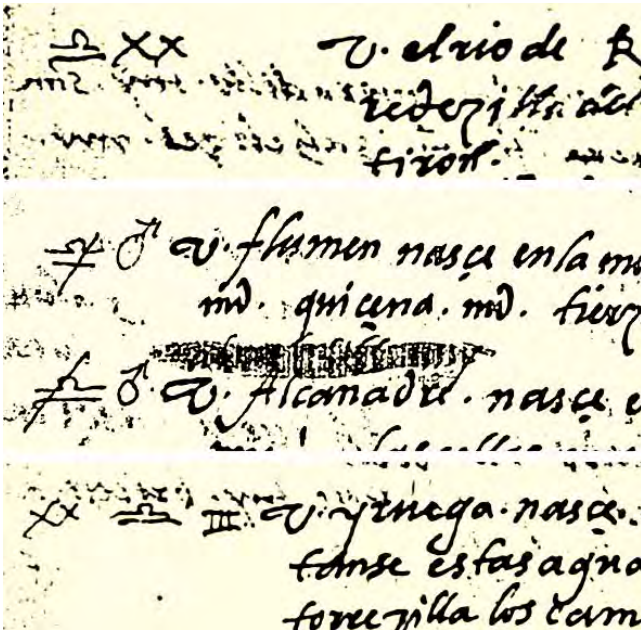 ♎ XX v. el rio de R
redezilla del
tiron.
♎ ♂ v. flumen nasçe en la m
md. quiçena. md. tierz
♎ ♂ v. Alcanadre. nasçe e
XX ♎ III v. yruega. nasçe.
tanse estas agua
torrezilla los cam